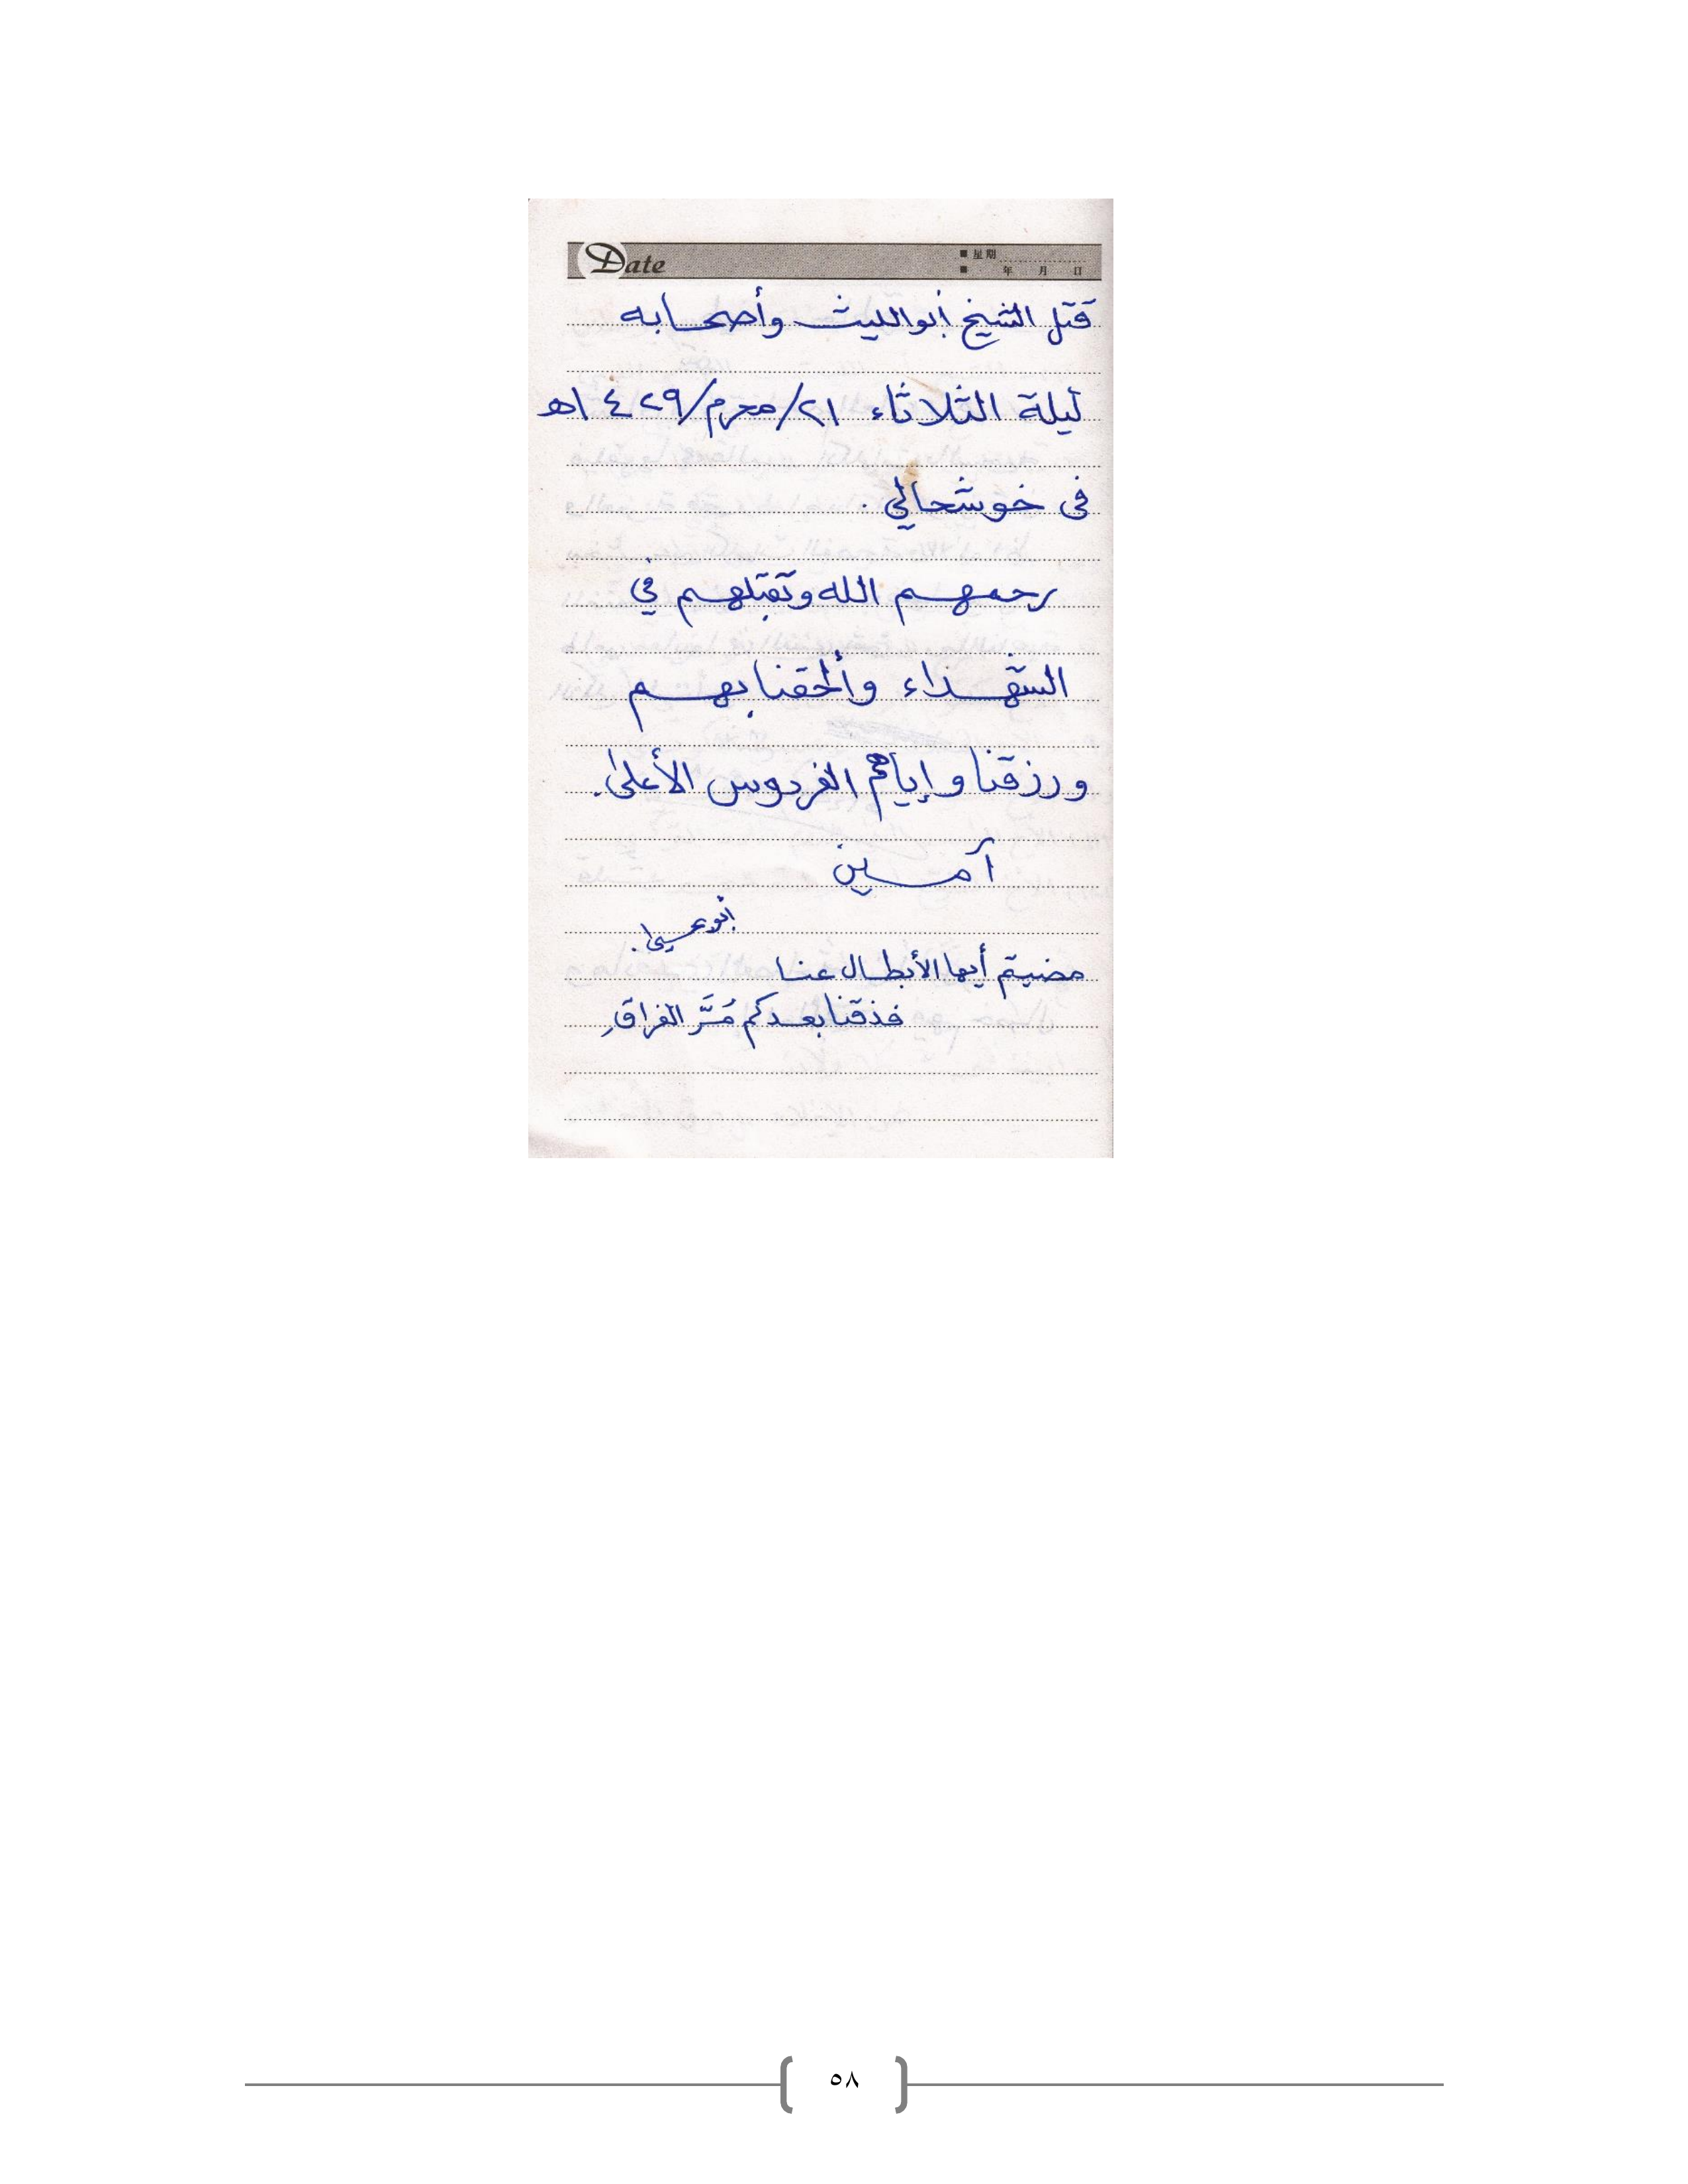 Date ■ 星期
■ 年 月 日
قتل الشيخ أبو الليث وأصحابه
ليلة الثلاثاء ٢١/محرم/١٤٢٩هـ
في خوشحالي.
رحمهم الله وتقبلهم في
الشهداء وألحقنا بهم
ورزقنا وإياهم الفردوس الأعلى.
آمــين
أبو يحيى.
مضيتم أيها الأبطال عنا
فذقنا بعدكم مُرَّ الفراقِ
٥٨